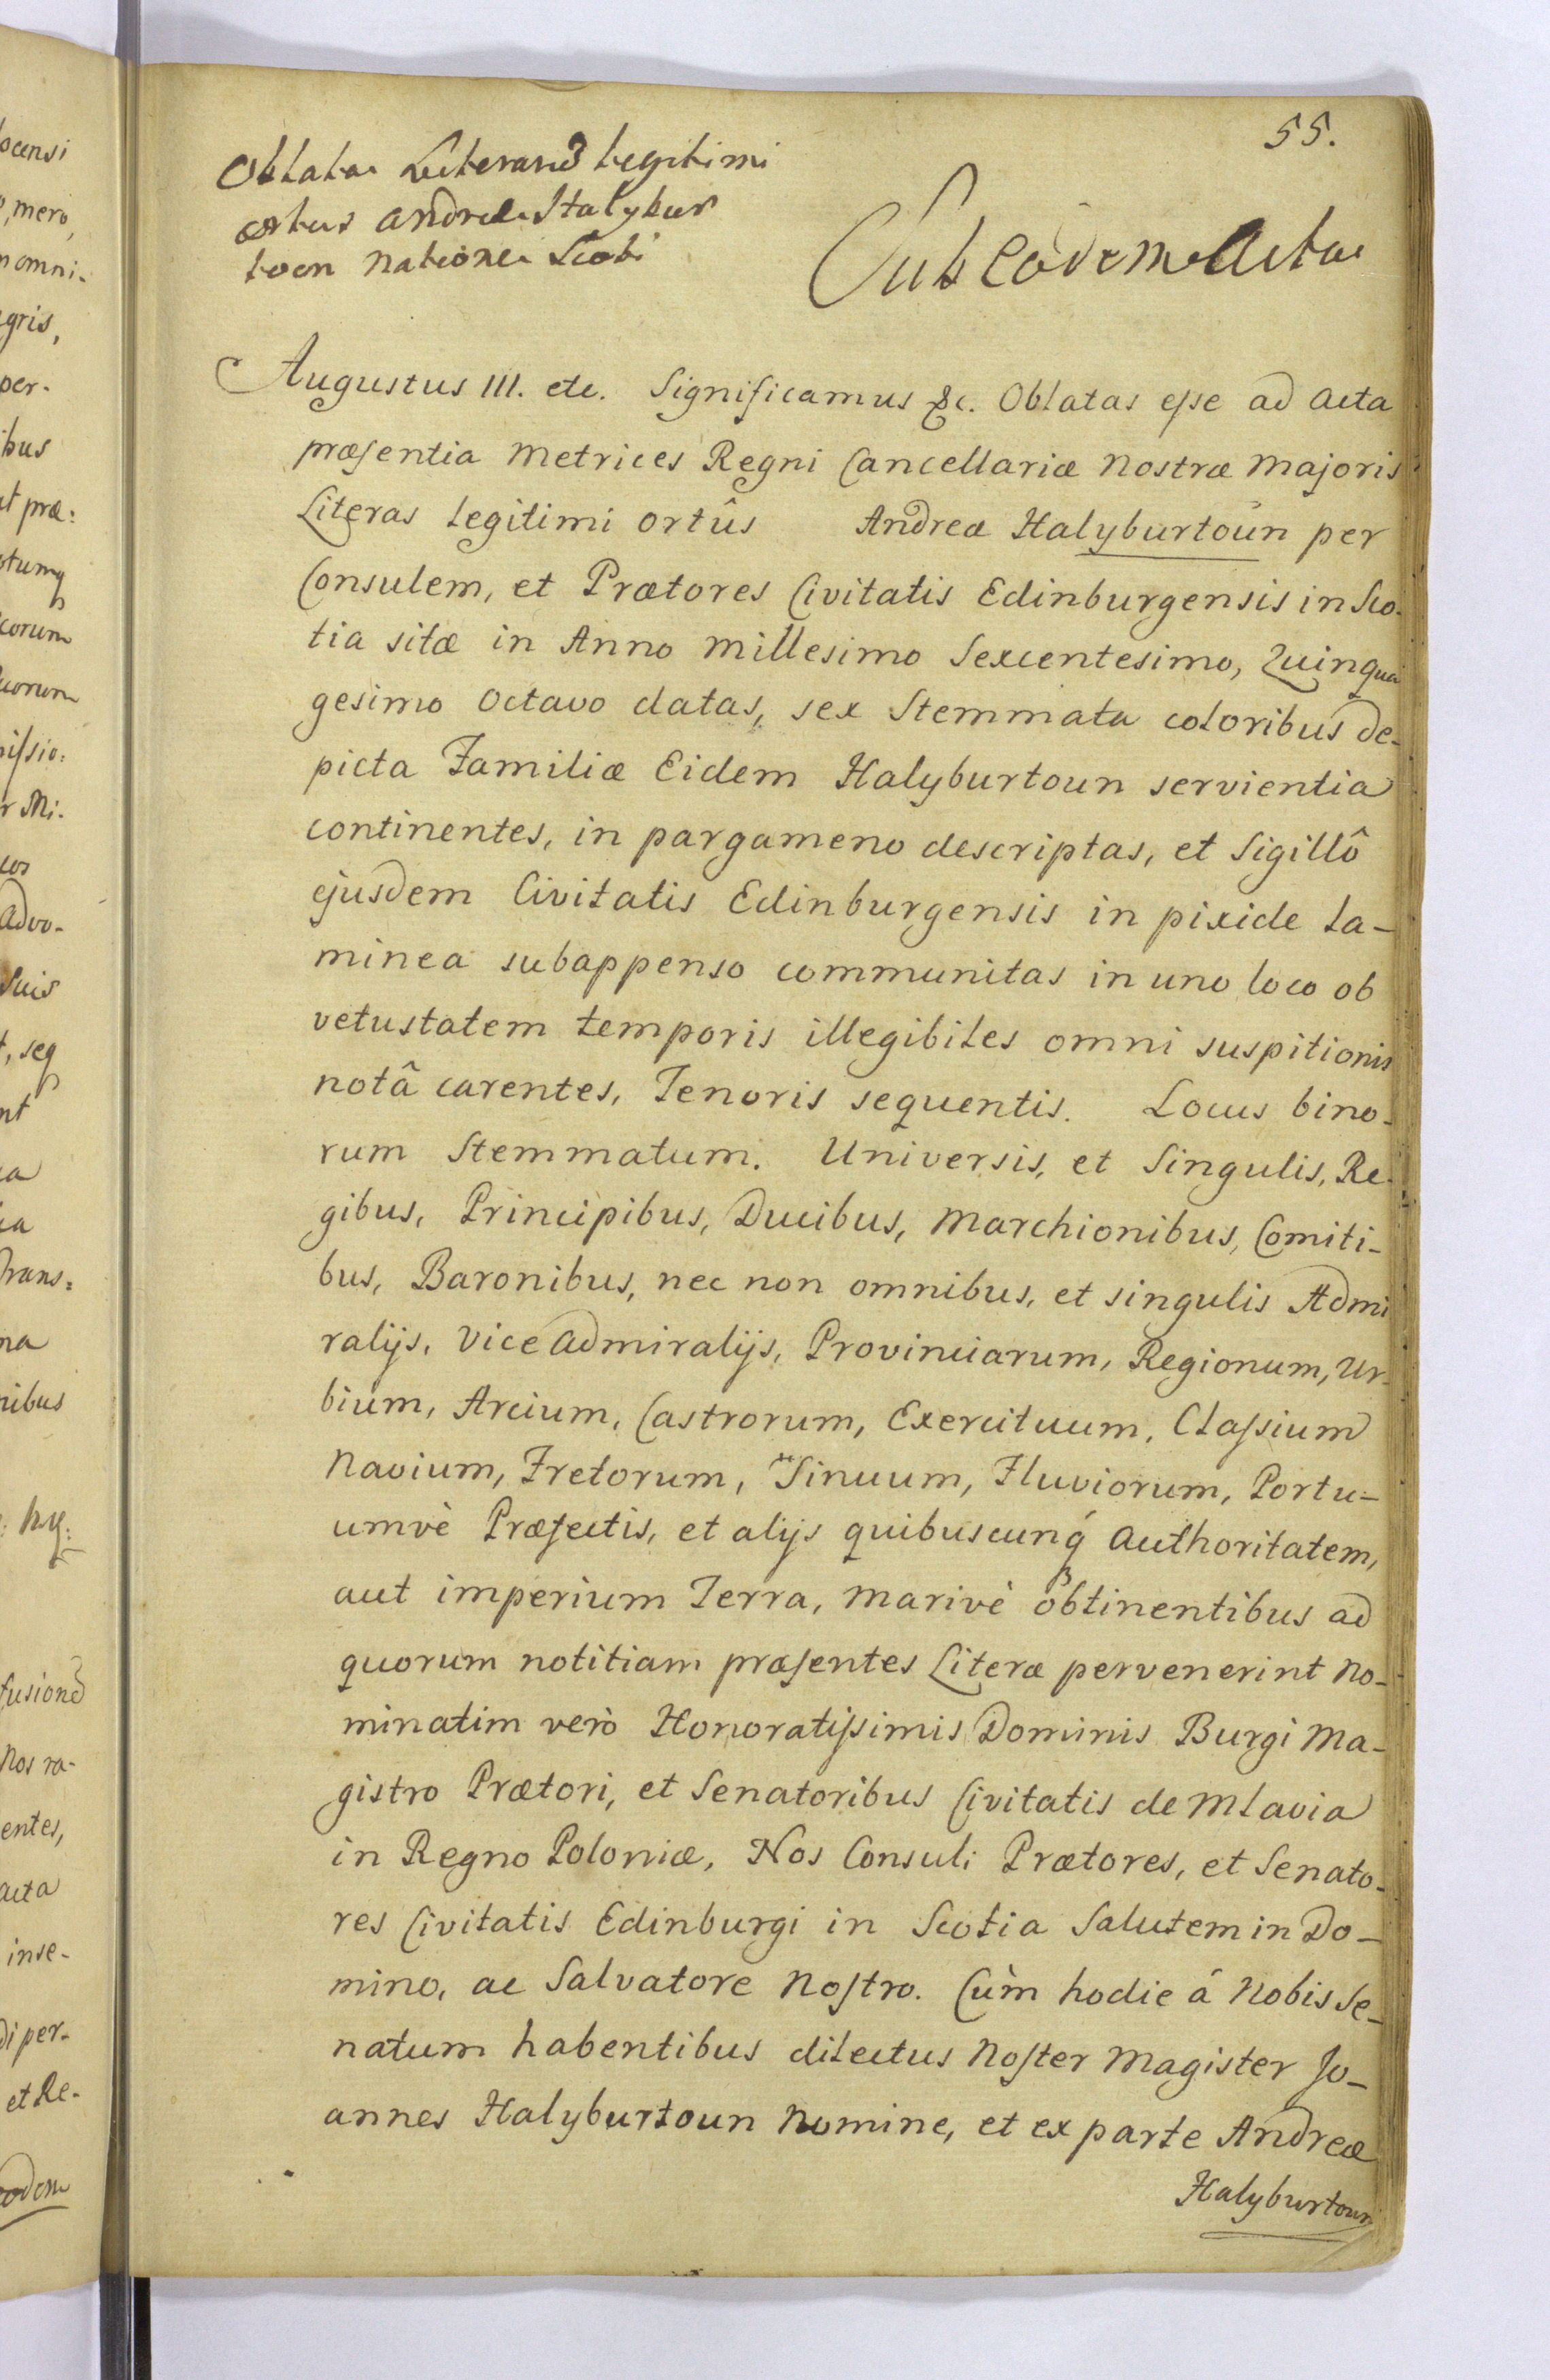 55.
Oblata Literarũ legitimi
ortus Andreæ Halybur
toun natione Scoti
Sub eodem Actu
Augustus III. etc. Significamus &c. Oblatas eſse ad Acta
præsentia Metrices Regni Cancellariæ Nostræ Majoris
Literas legitimi ortûs Andreæ Halyburtoun per
Consulem, et Prætores Civitatis Edinburgensis in Sco-
tia sitæ in Anno Millesimo Sexcentesimo, Quinqua
gesimo Octavo datas, sex Stemmata coloribus de-
picta Familiæ Eidem Halyburtoun servientia
continentes, in pargameno descriptas, et Sigillô
ejusdem Civitatis Edinburgensis in pixide la-
minea subappenso communitas in uno loco ob
vetustatem temporis illegibiles omni suspitionis
notâ carentes, Tenoris sequentis. Locus bino-
rum Stemmatum. Universis, et Singulis, Re-
gibus, Principibus, Ducibus, Marchionibus, Comiti-
bus, Baronibus, nec non omnibus, et singulis Admi
ralijs, Vice Admiralijs, Provinciarum, Regionum, Ur-
bium, Arcium, Castrorum, Exercituum, Claſsium
Navium, Fretorum, Sinuum, Fluviorum, Portu-
umvè Præfectis, et alijs quibuscunq́ Authoritatem,
aut imperium Terra, Marivè obtinentibus ad
quorum notitiam præsentes Literæ pervenerint no-
minatim verò Honoratiſsimis Dominis Burgi Ma-
gistro Prætori, et Senatoribus Civitatis de Mlavia
in Regno Poloniæ, Nos Consuli Prætores, et Senato-
res Civitatis Edinburgi in Scotia Salutem in Do-
mino, ac Salvatore Noſtro. Cùm hodie á Nobis Se-
natum habentibus dilectus Noſter Magister Jo-
annes Halyburtoun Nomine, et ex parte Andreæ
Halyburtoun